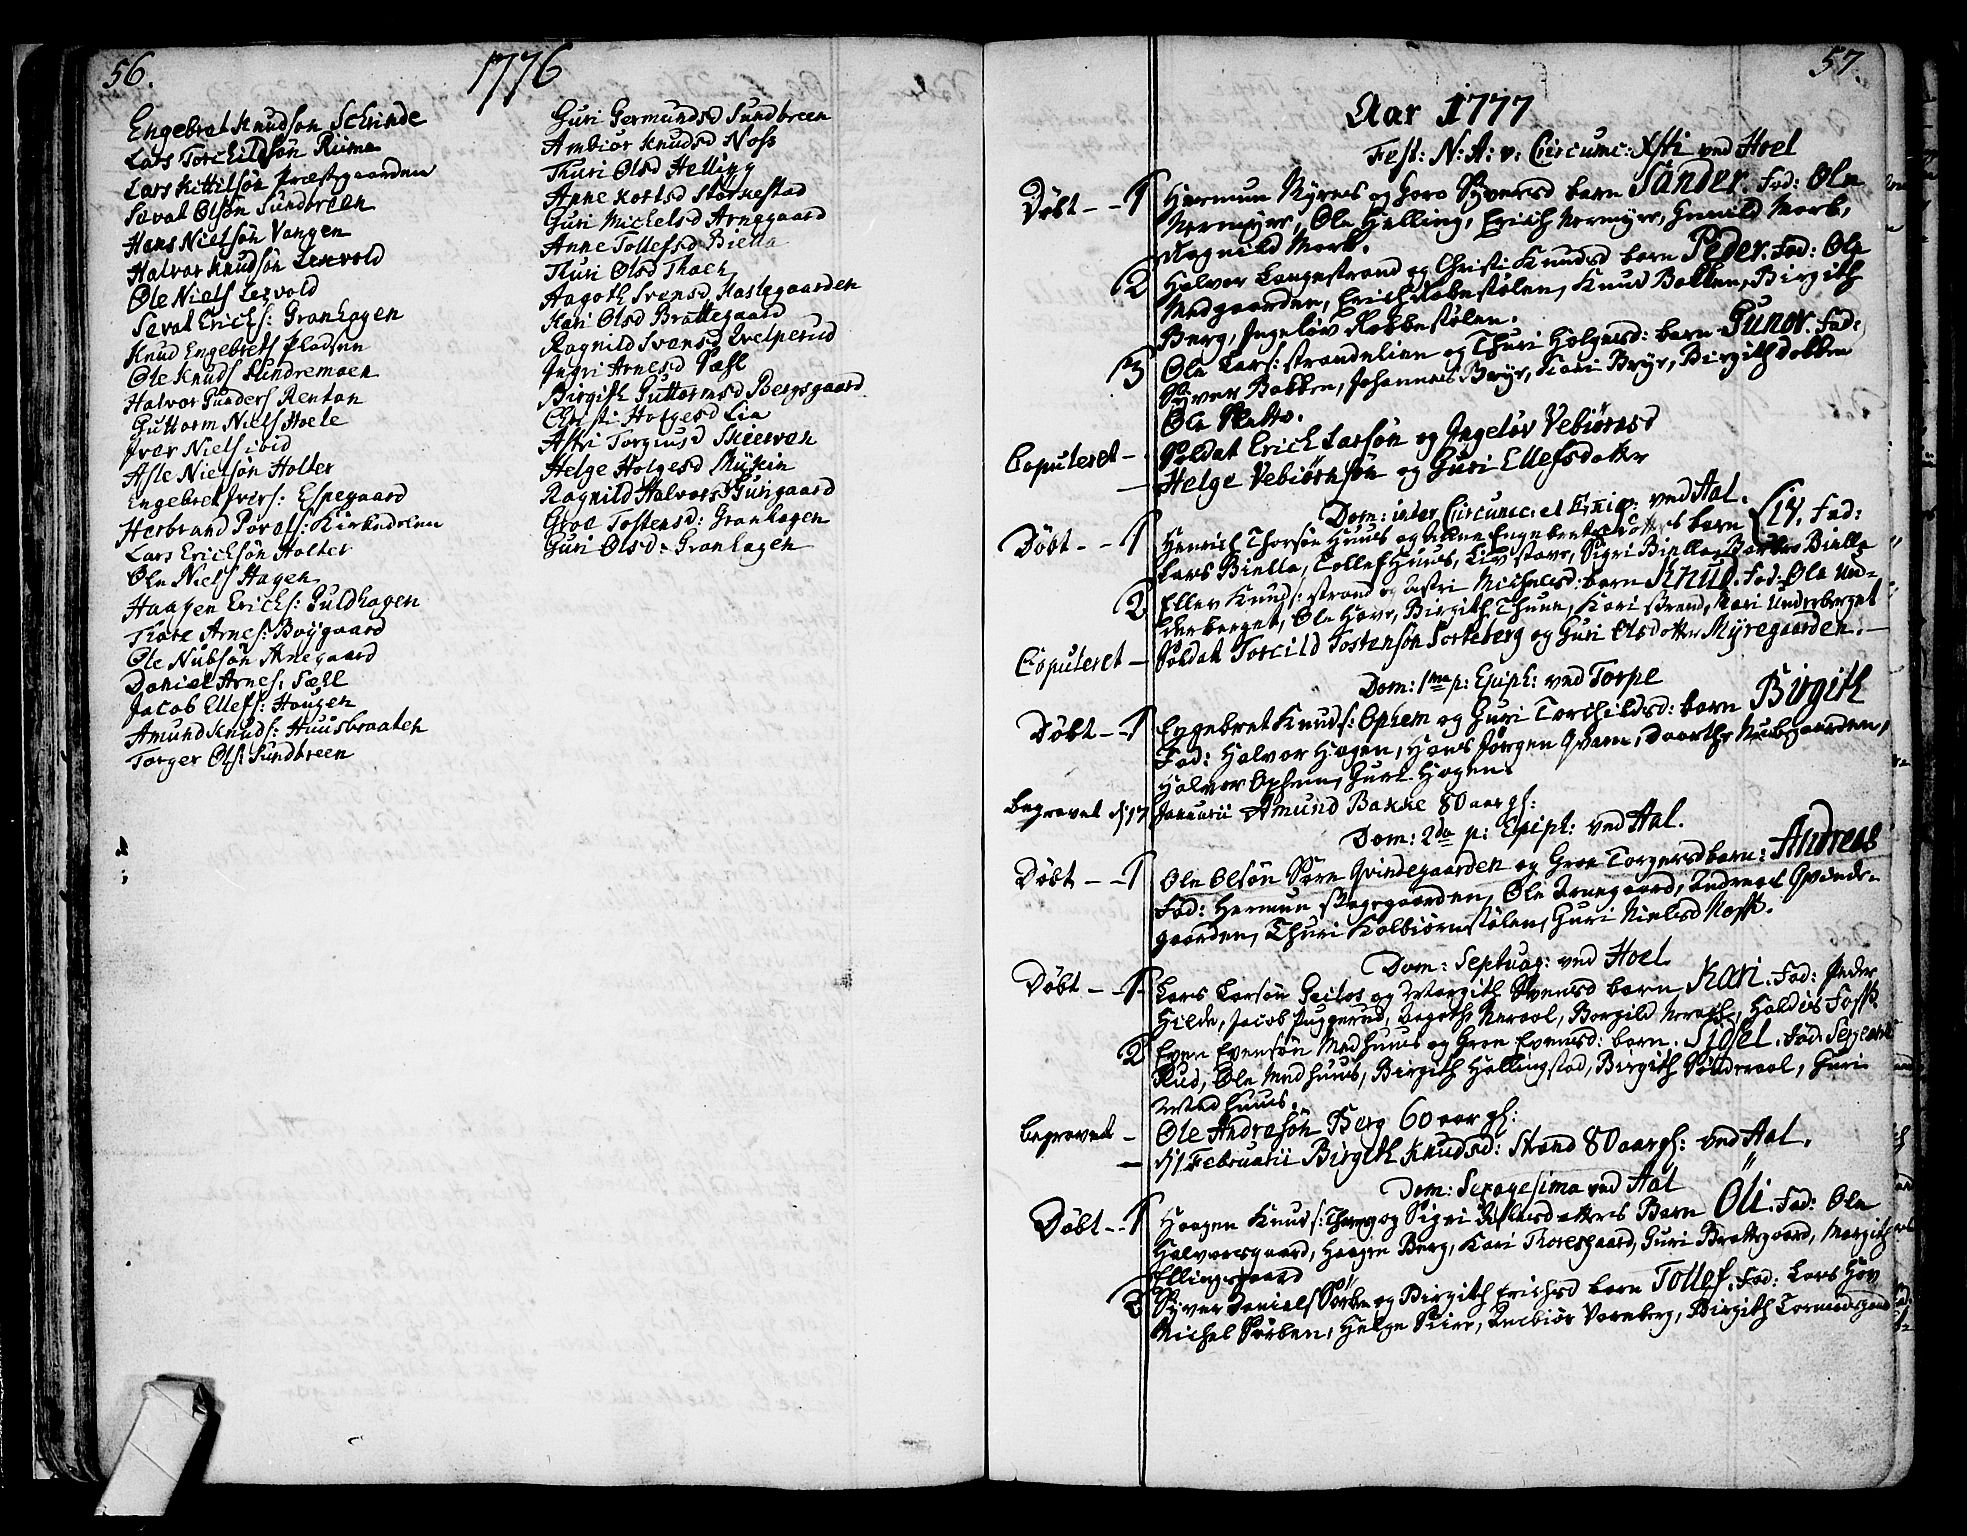 56.
1776
Engebret Knudsøn Schrinde
Lars Torchildsøn Riime
Lars Kittilsøn Præstegaarden
Sævat Olsøn Sundbreen
Hans Nielsøn Vangen
Halvor Knudsøn Lexvold
Ole Niels Lexvold
Sevat Erichs: Granhagen
Knud Engebrets Pladsen
Ole Knuds Sundremoen
Halvor Gunders Renton
Guttorm Niels Hoele
Iver Niels ibid
Asle Nielsøn Holter
Engebret Ivers: Espegaard
Herbrand Povels: Kirkedelen
Lars Ericksøn Holter
Ole Niels Hagen
Haagen Ericks: Guldhagen
Thore Arnes: Bøygaard
Ole Nubsøn Arnegaard
Daniel Arnes. Sæhl
Jacob Ellefs: Haugen
Amund Knuds: Huusbraaten
Torger Ols: Sundbreen
Guri Germunds D Sundbreen
Ambiør Knudsd Noss
Thuri Olsd Helling
Anne Kortsd Storkestad
Guri Michelsd Arnegaard
Anne Tollefsd Biella
Thuri Olsd Thoen
Aagoth Svensd Haslegaarden
Kari Olsd Brattegaard
Ragnild Svensd Qvelperud
Ingri Arnesd Sæhl
Birgith Guttormsd Bergsgaard
Christi Holgesd Lia
Astri Torgiusd Skierven
Helge Holgesd Mykin
Ragnild Halvorsd Gurigaard
Groe Tostensd: Granhagen
Guri Olsd: Granhagen
57.
Aar 1777
Fest: N: A: v: Circumc: Xsti ved Hoel
Døbt - - 1 Hermun Myres og Goro Syversd barn Sander. Fad: Ole
Nermyre, Ole Helling, Erich Nermyre, Gunild Mork,
Ragnild Mork.
2 Halvor Langestrand og Christi Knudsd barn Peder. Fad: Ole
Medgaarden, Erich Robbestølen, Knud Bakken, Birgith
Berg, Ingeløv Robbestølen.
3 Ole Lars: Strandelien og Thuri Holgesd: barn Gunor. Fad:
Syver Bakken, Johannes Brye, Kari Brye, Birgith Dokken
Ole Slette.
Copuleret - Soldat Erich Larsøn og Ingeløv Vebiørnsd
- Helge Vebiørnsøn og Guri Ellefsdotter
Dom: inter Circumc: et Epip: ved Aal.
Døbt - - 1 Henrich Thorsøn Huus og Anne Engebretsdotters barn Liv. Fad:
Lars Biella, Tollef Huus, Liv Stave, Sigri Biella, Barbro Biella
2 Ellev Knuds: Strand og Astri Michelsd: barn Knud. Fad: Ole Un-
derberget, Ole Hove, Birgith Thune, Kari Strand, Kari Underberget
Copuleret - Soldat Torcild Tostensøn Sorteberg og Guri Olsdotter Myregaarden.
Dom: 1ma p: Epiph: ved Torpe
Døbt - - 1 Engebret Knuds: Ophem og Guri Torchildsd: barn Birgith
Fad: Halvor Hagen, Hans Jørgen Qvam, Dorthe Nubgaarden,
Halvor Ophem, Guri Hagen.
Begravet d: 17 Januarii Amund Bakke 80 aar gl:
Dom: 2da p: Epiph: ved Aal.
Døbt - - 1 Ole Olsøn Søre Qvindegaarden og Groe Torgersd barn: Andreas
Fad: Hermun Skegegaarden, Ole Arnegaard, Andreas Qvinde-
gaarden, Thuri Kolbiørnstølen, Guri Nielsd Noss.
Dom: Septuag: ved Hoel
Døbt - - 1 Lars Larsøn Geilos og Margith Svensd barn Kari. Fad: Peder
Hilde, Jacob Puggerud, Aagoth Neraal, Borgild Neraal, Haldis Foss
2 Even Evensøn Medhuus og Groe Evensd: barn. Sidsel. Fad: Sergeant
Rud, Ole Medhuus, Birgith Hallingstad, Birgith Sønderaal, Guri
Medhuus.
Begravet - Ole Andresøn Berg 60 aar gl:
- d: 1 Februarii Birgith Knudsd: Strand 80 aar gl: ved Aal.
Dom: Sexagesima ved Aal
Døbt - - 1 Haagen Knuds: Thoen og Sigri Asslesdotters Barn Oli. Fad: Ole
Halvorsgaard, Haagen Berg, Kari Thoresgaard, Guri Brattegaard, Margith
Ellingsgaard
2 Syver Daniels Sørbøe og Birgith Erichsd barn Tollef. Fad: Lars Hov
Michel Sørbøen, Helge Skier, Ambiør Vorneberg, Birgith Tormodsgaard